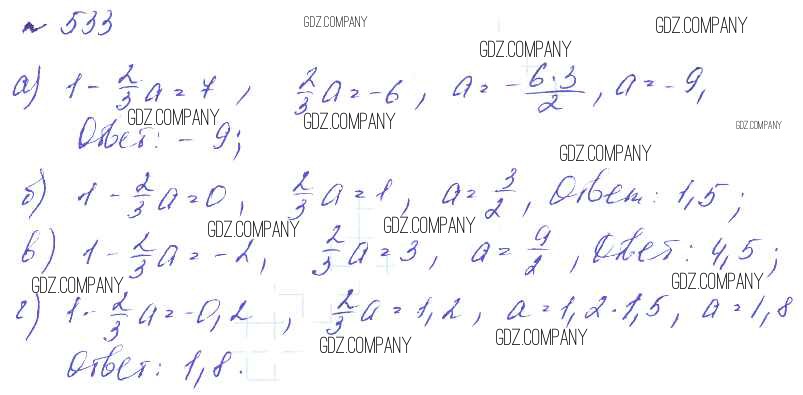 № 533 GDZ.COMPANY GDZ.COMPANY
GDZ.COMPANY
а) 1 - 2/3 a = 7, 2/3 a = -6, a = - 6·3/2, a = - 9,
GDZ.COMPANY GDZ.COMPANY GDZ.COMPANY
Ответ: - 9;
GDZ.COMPANY
б) 1 - 2/3 a = 0, 2/3 a = 1, a = 3/2, Ответ: 1,5;
GDZ.COMPANY GDZ.COMPANY
в) 1 - 2/3 a = -2, 2/3 a = 3, a = 9/2, Ответ: 4,5;
GDZ.COMPANY GDZ.COMPANY
г) 1 - 2/3 a = -0,2, 2/3 a = 1,2, a = 1,2·1,5, a = 1,8
GDZ.COMPANY GDZ.COMPANY
Ответ: 1,8.